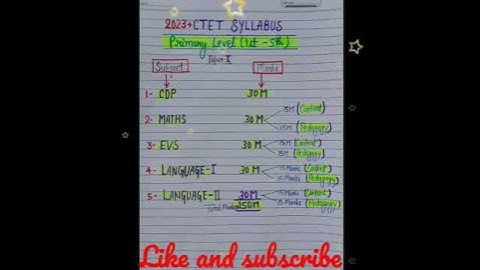 2023→CTET SYLLABUS
Primary Level (1st-5th)
Paper-I
Subject Marks
1- CDP 30M
15M (Content)
2- MATHS 30M
15M (Pedagogy)
15M (Content)
3- EVS 30M
15M (Pedagogy)
15 Marks (Content)
4- LANGUAGE-I 30M
15 Marks (Pedagogy)
15 Marks (Content)
5- LANGUAGE-II 30M
15 Marks (Pedagogy)
Total Marks 150M
Like and subscribe